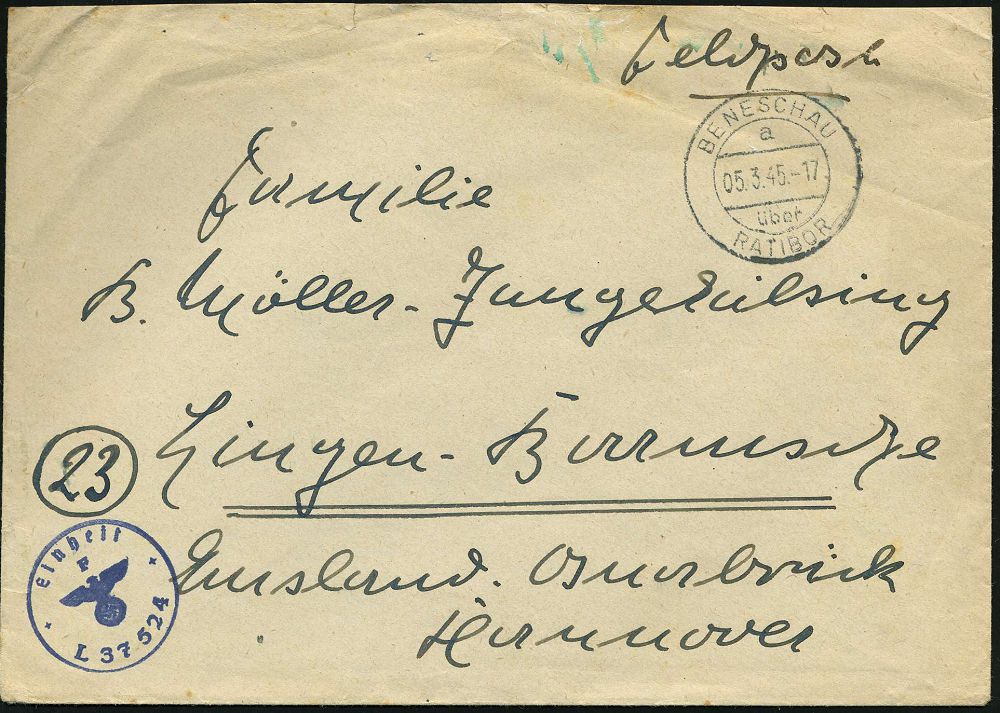 Feldpost
BENESCHAU
a
05.3.45.-17
über
RATIBOR
Familie
B. Möller-Jungehülsing
23
Lingen-Darme
Emsland. Osnabrück
Hannover
Einheit
F
L 37524